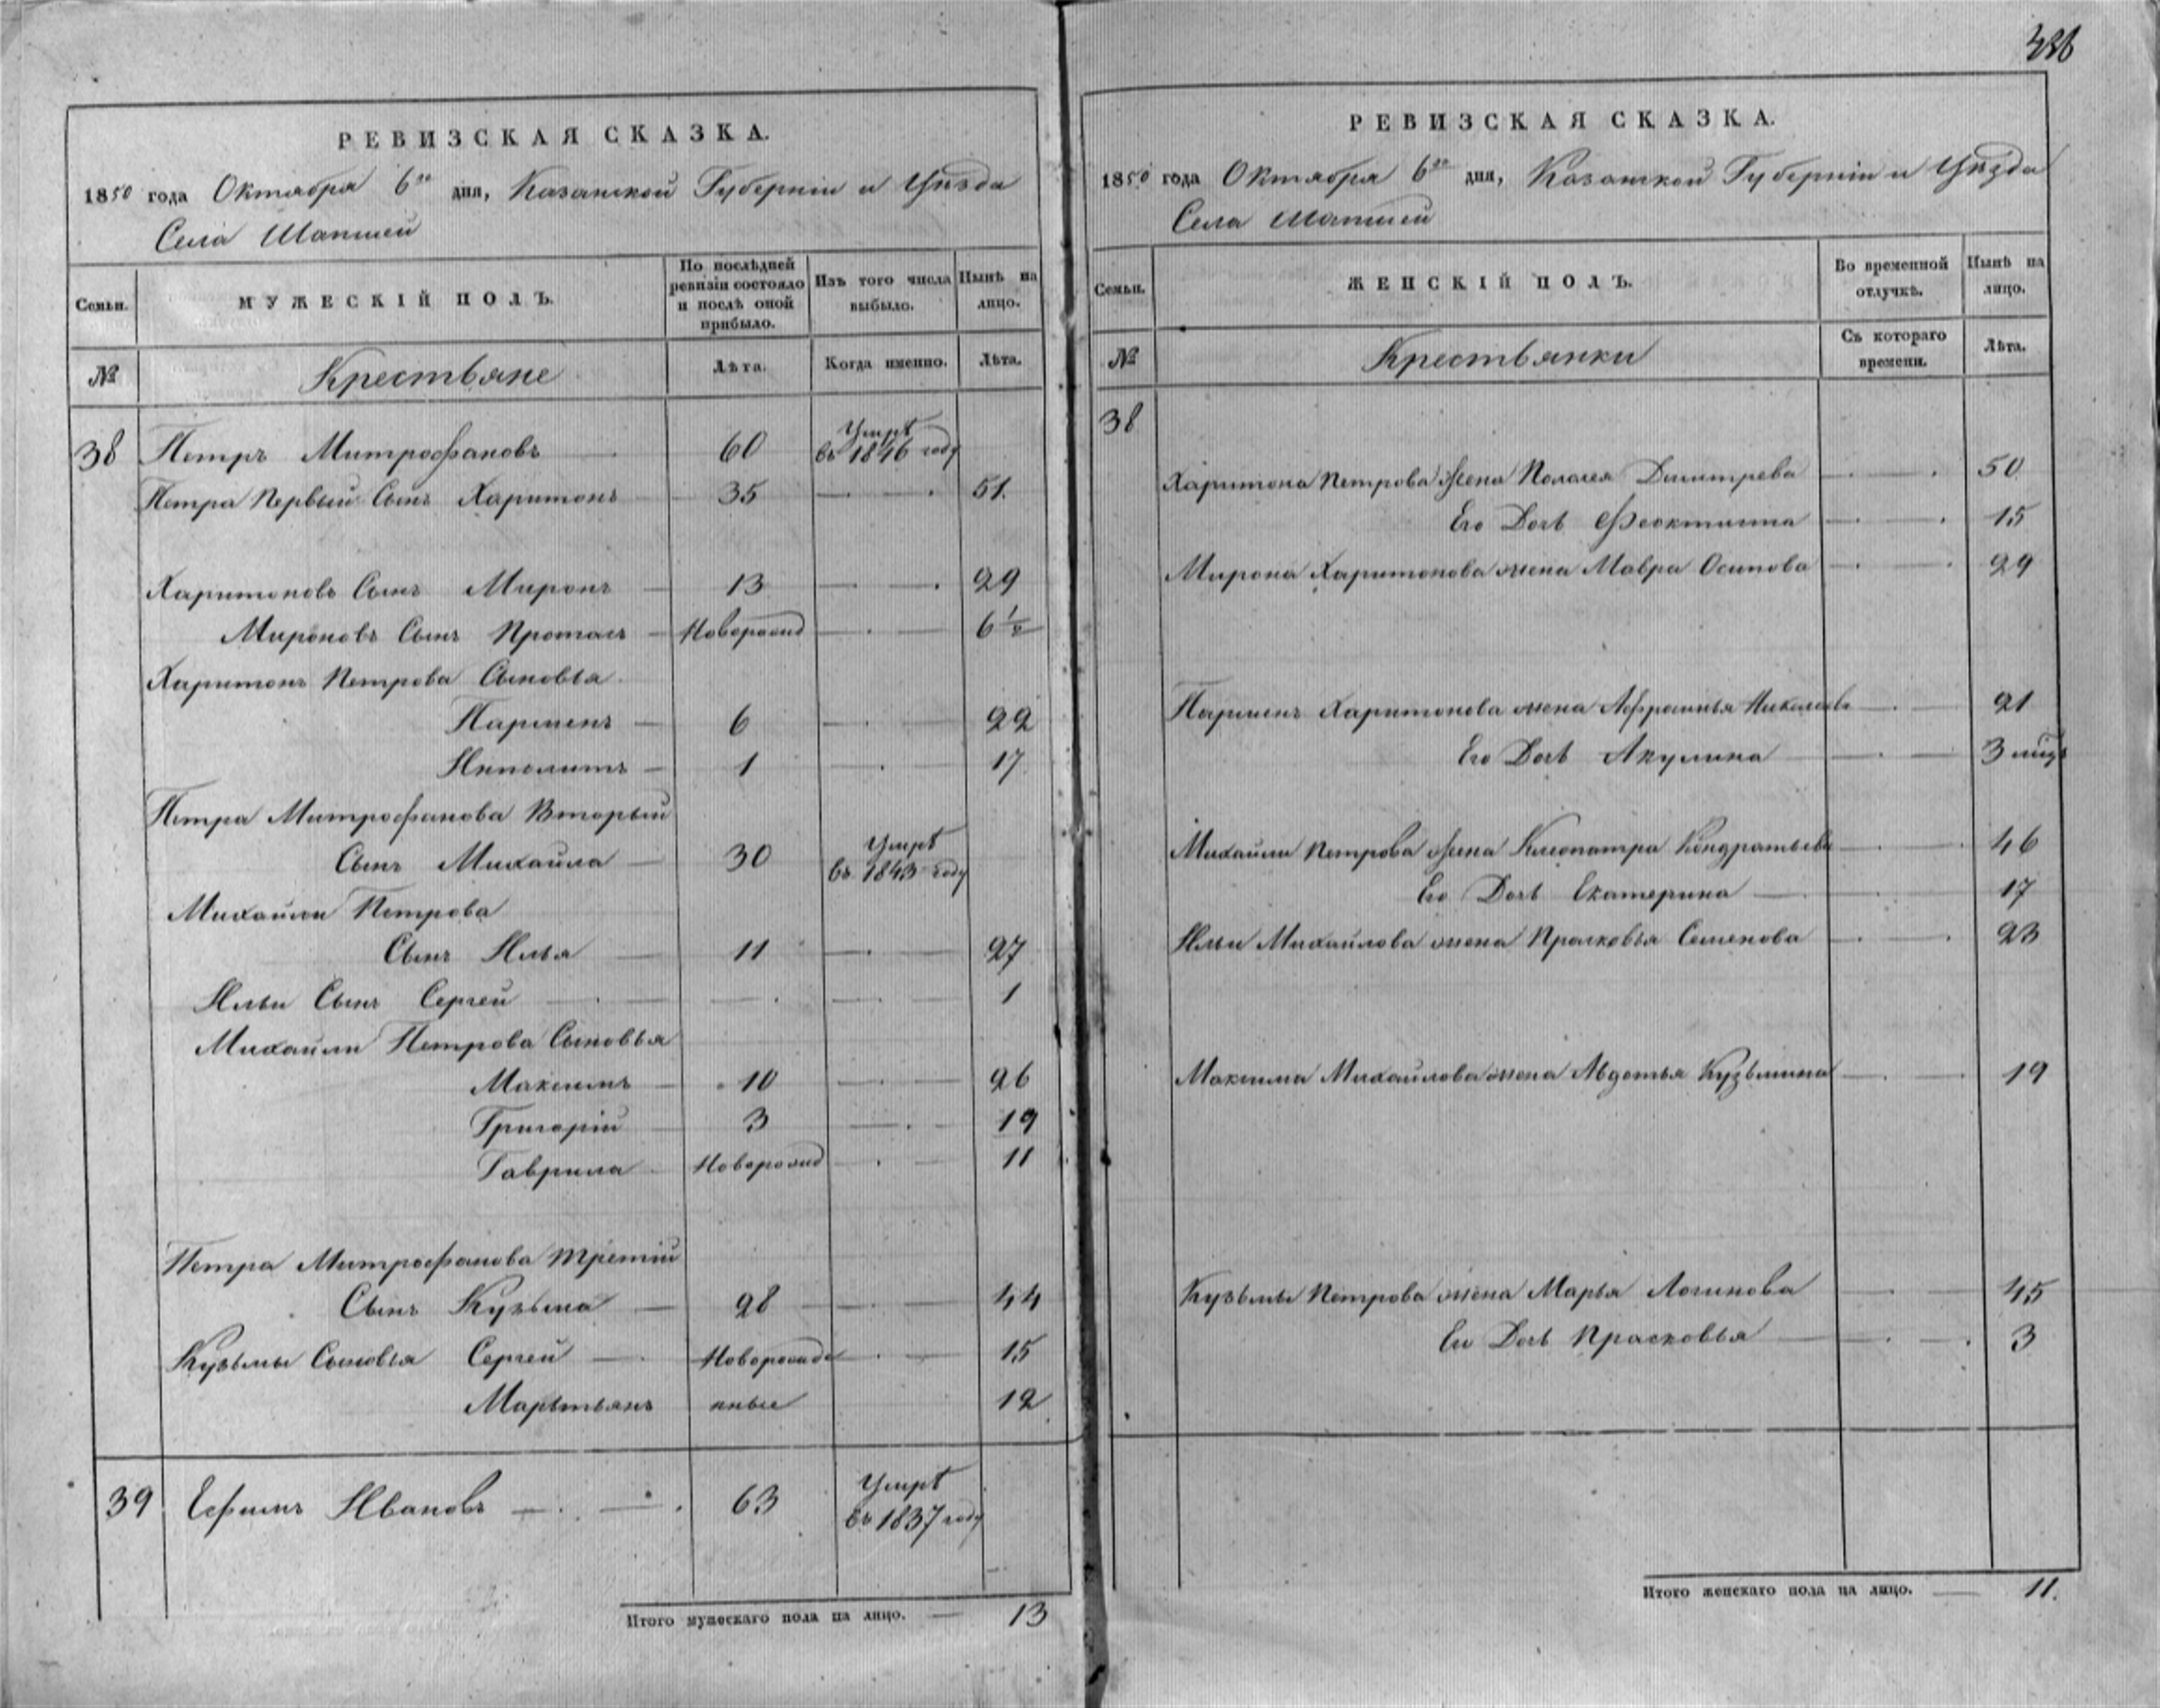 РЕВИЗСКАЯ СКАЗКА.
1850 года Октября 6го дня, Казанской Губерніи и Уѣзда
Села Шапшей
Семьи.
МУЖЕСКІЙ ПОЛЪ.
По послѣдней ревизіи состояло и послѣ оной прибыло.
Изъ того числа выбыло.
Нынѣ на лицо.
№
Крестьяне
Лѣта.
Когда именно.
Лѣта.
38 Петръ Митрофановъ 60 Умрѣ въ 1846 году
Петра Первый Сынъ Харитонъ 35 51.
Харитоновъ Сынъ Миронъ 13 29
Мироновъ Сынъ Протасъ Новорожд 6 1/2
Харитонъ Петрова Сыновья
Парменъ 6 22
Ипполитъ 1 17
Петра Митрофанова Вторый
Сынъ Михайла 30 Умрѣ въ 1843 году
Михайлы Петрова
Сынъ Илья 11 27
Ильи Сынъ Сергей 1
Михайлы Петрова Сыновья
Максимъ 10 26
Григорій 3 19
Гаврила Новорожд 11
Петра Митрофанова третій
Сынъ Кузьма 28 44
Кузьмы Сыновья Сергей Новорожде 15
Мартьянъ нные 12
39 Ефимъ Ивановъ 63 Умрѣ въ 1837 году
Итого мужескаго пола на лицо. 13
486
РЕВИЗСКАЯ СКАЗКА.
1850 года Октября 6го дня, Казанской Губерніи и Уѣзда
Села Шапшей
Семьи.
ЖЕНСКІЙ ПОЛЪ.
Во временной отлучкѣ.
Нынѣ на лицо.
№
Крестьянки
Съ котораго времени.
Лѣта.
38
Харитона Петрова жена Палагея Дмитрева 50
Его Дочь Феоктиста 15
Мирона Харитонова жена Мавра Осипова 29
Парменъ Харитонова жена Афросинья Николаева 21
Его Дочь Акулина 3 мѣця
Михайлы Петрова жена Клеопатра Кондратьева 46
Его Дочь Екатерина 17
Ильи Михайлова жена Прасковья Семенова 23
Максима Михайлова жена Авдотья Кузьмина 19
Кузьмы Петрова жена Марья Логинова 45
Ево Дочь Прасковья 3
Итого женскаго пола на лицо. 11.